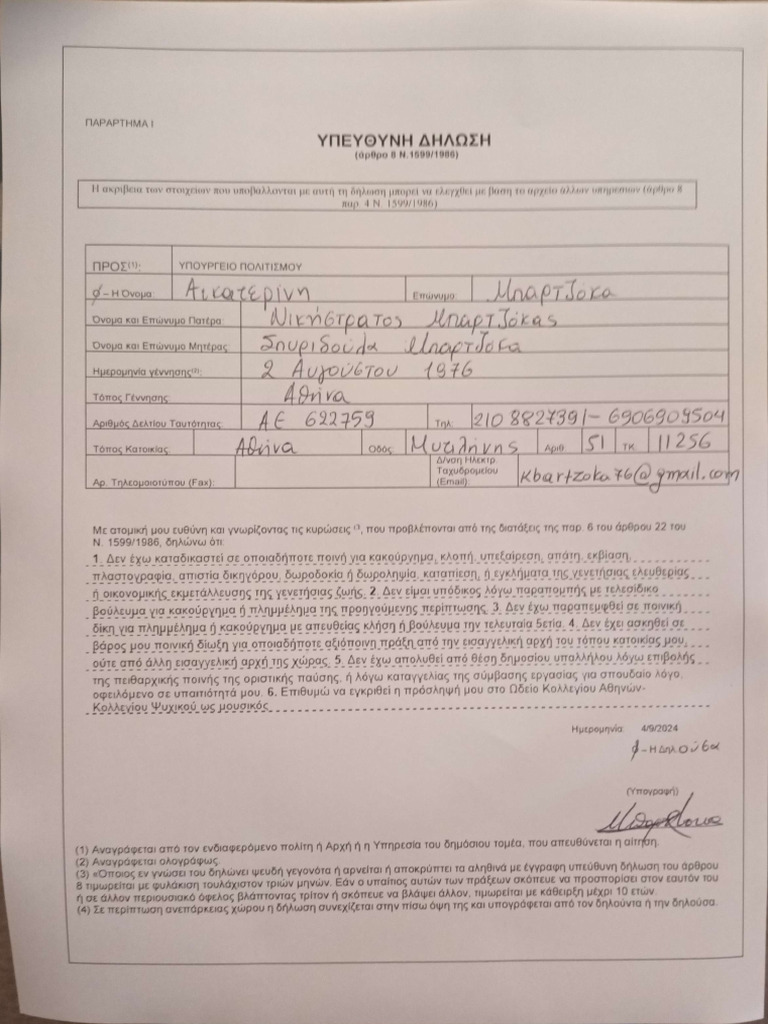 ΠΑΡΑΡΤΗΜΑ Ι
ΥΠΕΥΘΥΝΗ ΔΗΛΩΣΗ
(άρθρο 8 Ν.1599/1986)
Η ακρίβεια των στοιχείων που υποβάλλονται με αυτή τη δήλωση μπορεί να ελεγχθεί με βάση το αρχείο άλλων υπηρεσιών (άρθρο 8
παρ. 4 Ν. 1599/1986)
ΠΡΟΣ(1): ΥΠΟΥΡΓΕΙΟ ΠΟΛΙΤΙΣΜΟΥ
Ο – Η Όνομα: Αικατερίνη Επώνυμο: Μπαρτζόκα
Όνομα και Επώνυμο Πατέρα: Νικήστρατος Μπαρτζόκας
Όνομα και Επώνυμο Μητέρας: Σπυριδούλα Μπαρτζόκα
Ημερομηνία γέννησης(2): 2 Αυγούστου 1976
Τόπος Γέννησης: Αθήνα
Αριθμός Δελτίου Ταυτότητας: ΑΕ 622759 Τηλ: 210 8827391 - 6906909504
Τόπος Κατοικίας: Αθήνα Οδός: Μυτιλήνης Αριθ: 51 ΤΚ: 11256
Αρ. Τηλεομοιοτύπου (Fax): Δ/νση Ηλεκτρ. Ταχυδρομείου (Email): kbartzoka76@gmail.com
Με ατομική μου ευθύνη και γνωρίζοντας τις κυρώσεις (3, που προβλέπονται από της διατάξεις της παρ. 6 του άρθρου 22 του
Ν. 1599/1986, δηλώνω ότι:
1. Δεν έχω καταδικαστεί σε οποιαδήποτε ποινή για κακούργημα, κλοπή, υπεξαίρεση, απάτη, εκβίαση,
πλαστογραφία, απιστία δικηγόρου, δωροδοκία ή δωροληψία, καταπίεση, ή εγκλήματα της γενετήσιας ελευθερίας
ή οικονομικής εκμετάλλευσης της γενετήσιας ζωής. 2. Δεν είμαι υπόδικος λόγω παραπομπής με τελεσίδικο
βούλευμα για κακούργημα ή πλημμέλημα της προηγούμενης περίπτωσης. 3. Δεν έχω παραπεμφθεί σε ποινική
δίκη για πλημμέλημα ή κακούργημα με απευθείας κλήση ή βούλευμα την τελευταία 5ετία. 4. Δεν έχει ασκηθεί σε
βάρος μου ποινική δίωξη για οποιαδήποτε αξιόποινη πράξη από την εισαγγελική αρχή του τόπου κατοικίας μου,
ούτε από άλλη εισαγγελική αρχή της χώρας. 5. Δεν έχω απολυθεί από θέση δημοσίου υπαλλήλου λόγω επιβολής
της πειθαρχικής ποινής της οριστικής παύσης, ή λόγω καταγγελίας της σύμβασης εργασίας για σπουδαίο λόγο,
οφειλόμενο σε υπαιτιότητά μου. 6. Επιθυμώ να εγκριθεί η πρόσληψή μου στο Ωδείο Κολλεγίου Αθηνών-
Κολλεγίου Ψυχικού ως μουσικός
Ημερομηνία: 4/9/2024
Ο – Η Δηλούσα
(Υπογραφή)
(1) Αναγράφεται από τον ενδιαφερόμενο πολίτη ή Αρχή ή η Υπηρεσία του δημόσιου τομέα, που απευθύνεται η αίτηση.
(2) Αναγράφεται ολογράφως.
(3) «Όποιος εν γνώσει του δηλώνει ψευδή γεγονότα ή αρνείται ή αποκρύπτει τα αληθινά με έγγραφη υπεύθυνη δήλωση του άρθρου
8 τιμωρείται με φυλάκιση τουλάχιστον τριών μηνών. Εάν ο υπαίτιος αυτών των πράξεων σκόπευε να προσπορίσει στον εαυτόν του
ή σε άλλον περιουσιακό όφελος βλάπτοντας τρίτον ή σκόπευε να βλάψει άλλον, τιμωρείται με κάθειρξη μέχρι 10 ετών.
(4) Σε περίπτωση ανεπάρκειας χώρου η δήλωση συνεχίζεται στην πίσω όψη της και υπογράφεται από τον δηλούντα ή την δηλούσα.